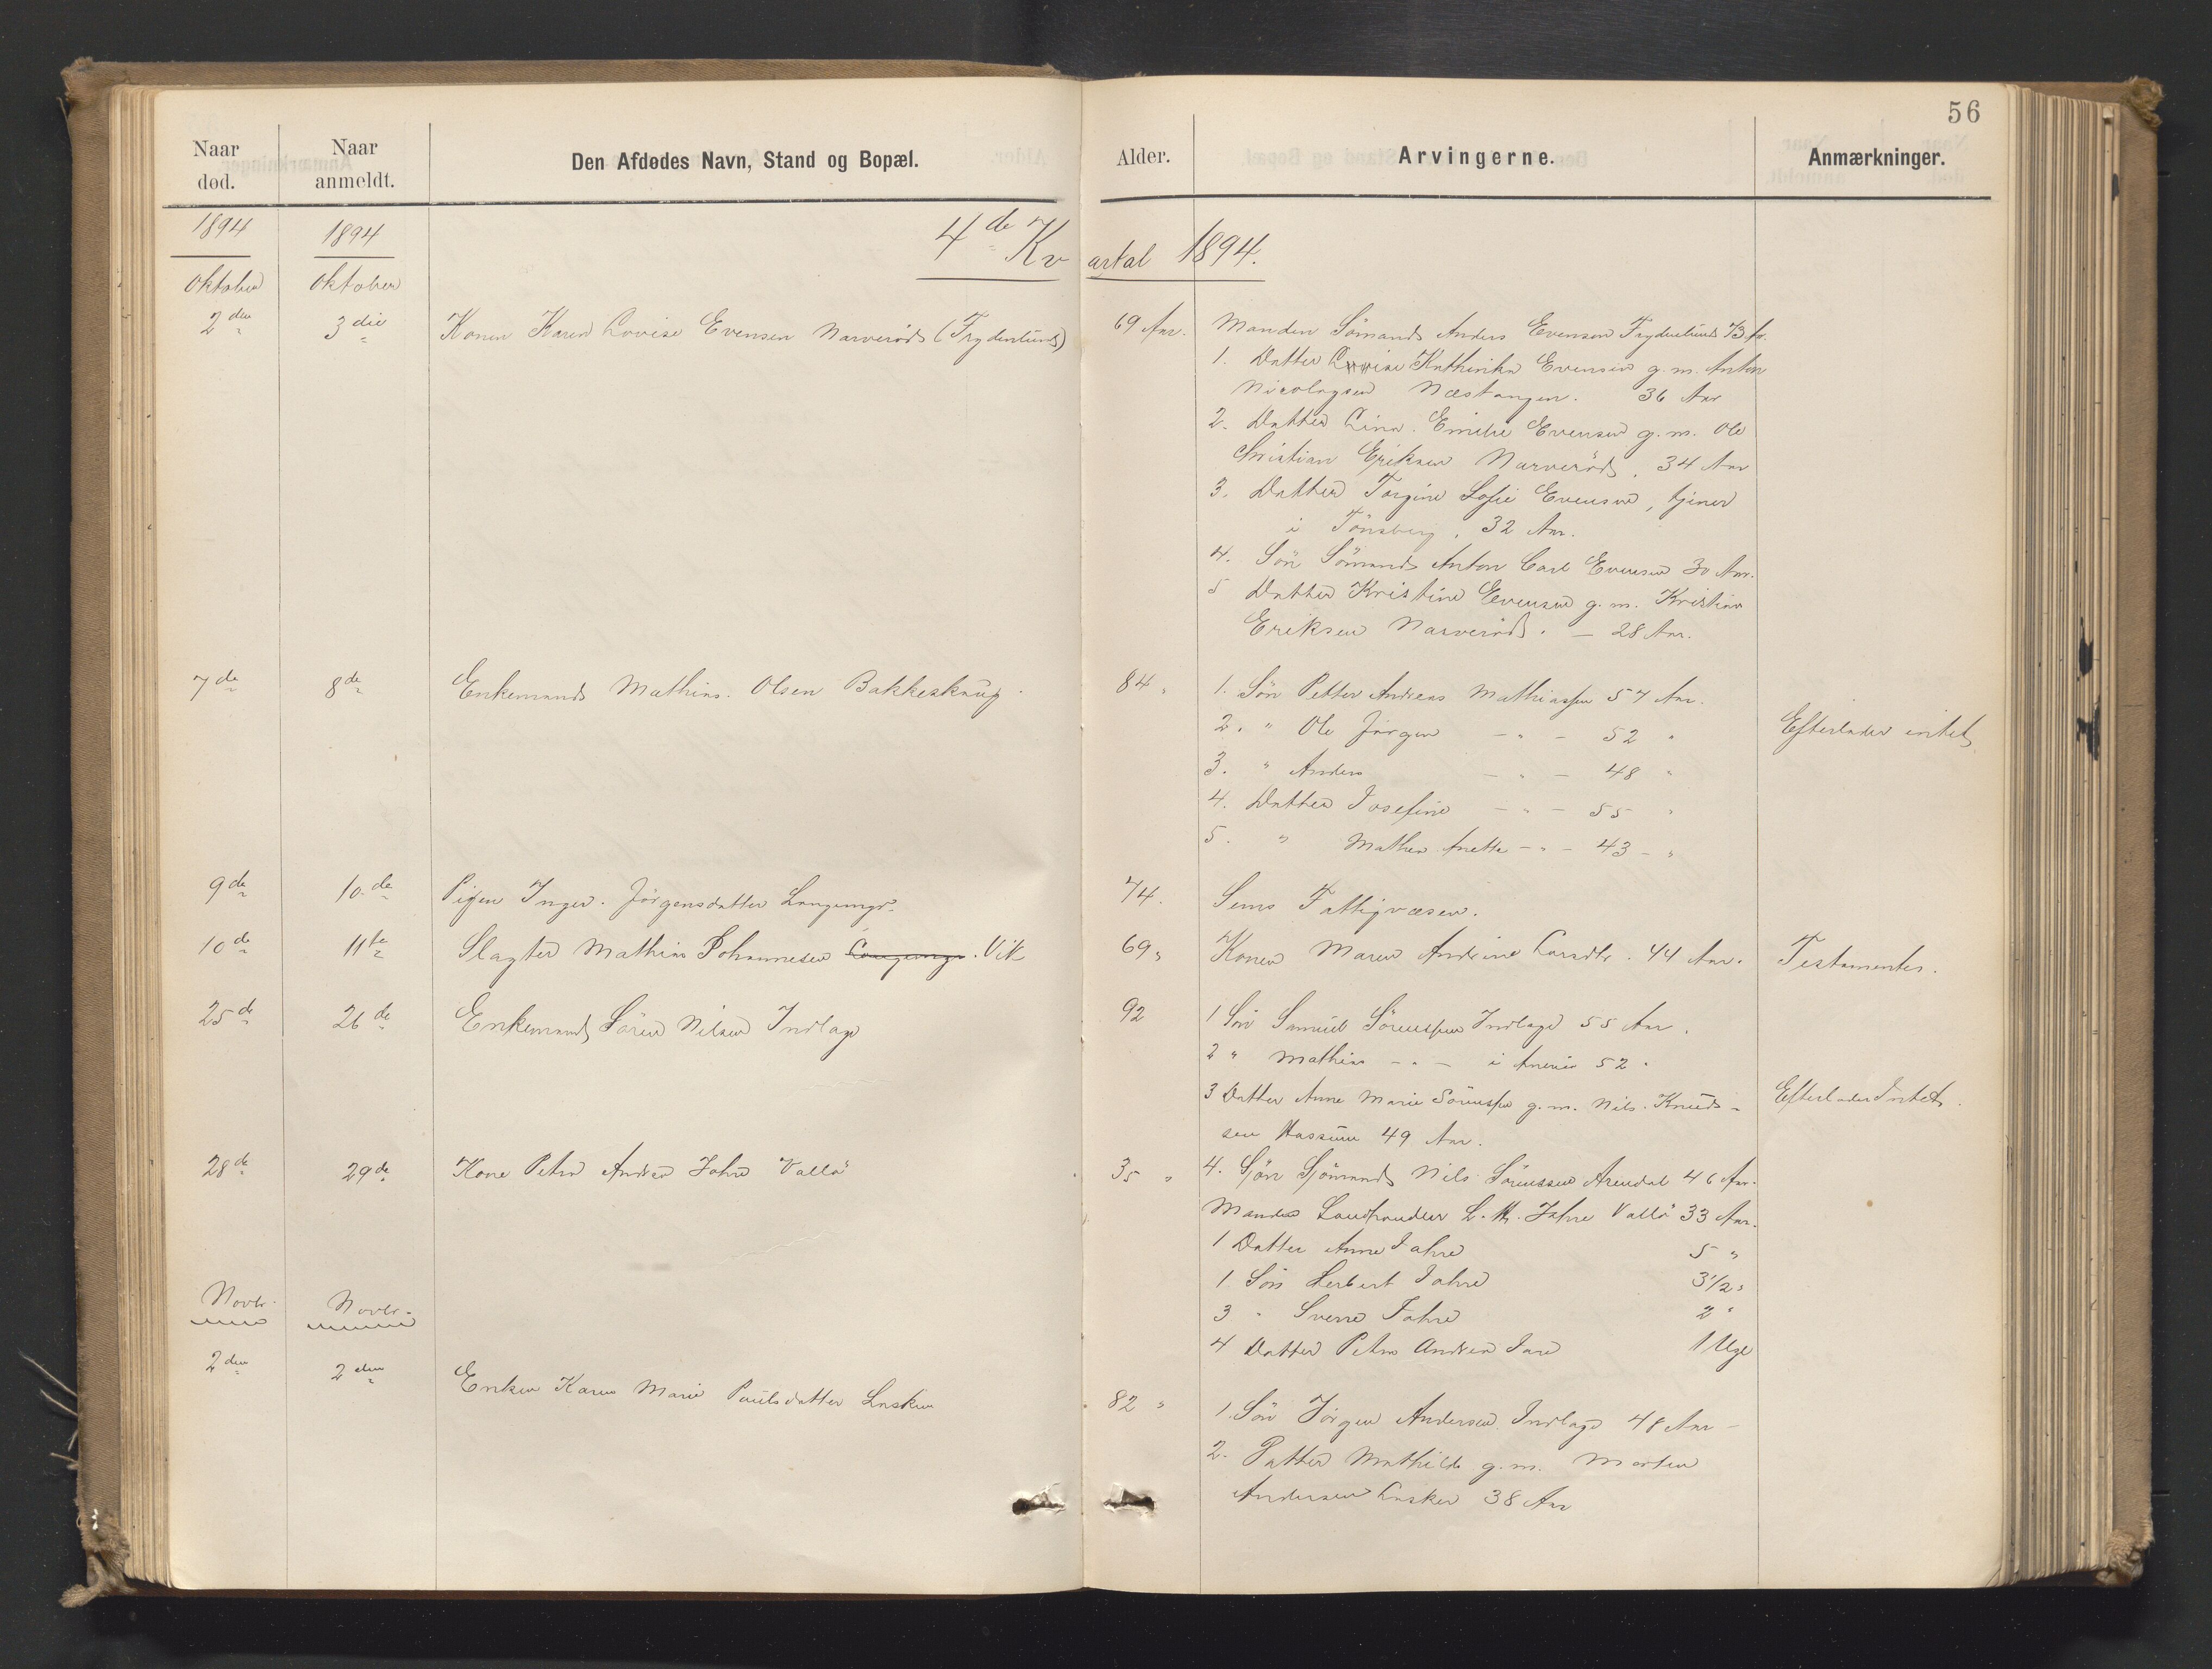 56
Naar død.
Naar anmeldt.
Den Afdødes Navn, Stand og Bopæl.
Alder.
Arvingerne.
Anmærkninger.
1894 1894
4de Kvartal 1894.
Oktober Oktober
2den 3die Konen Karen Lovise Evensen Narverød (Frydenlund) 69 Aar. Manden Sömand Anders Evensen Frydenlund 73 Ar.
1. Datter Lovise Kathinka Evensen g. m. Anton
Nicolaysen Næstangen. 36 Aar
2. Datter Lina Emilie Evensen g. m. Ole
Christian Eriksen Narveröd, 34 Aar
3. Datter Torgine Sofie Evensen, tjener
i Tönsberg, 32 Aar.
4. Sön Sömand Anton Carl Evensen 30 Aar.
5 Datter Kristine Evensen g. m. Kristian
Eriksen Narveröd. – 28 Aar.
7de 8de Enkemand Mathias Olsen Bakkeskaug 84 " 1. Sön Petter Andreas Mathiassen 57 Aar.
2. " Ole Jörgen – " – 52 " Efterlader intet.
3. " Anders – " – 48 "
4. Datter Josefine – " – 55 "
5. " Mathea Anette – " – 43 – "
9de 10de Pigen Inger Jörgensdatter 74. Sems Fattigvæsen.
10de 11te Slagter Mathias Johannesen Vik 69 " Konen Maren Andrine Larsdtr. 44 Aar. Testamenter.
25de 26de Enkemand Sören Nilsen Indlage 92 1 Sön Samuel Sörensen Indlage 55 Aar.
2 " Mathias – " – i 52 "
3 Datter Anne Marie Sörensen g. m. Nils Knud- Efterlader Intet.
sen Hassum 49 Aar.
4. Sjön Sjömand Nils Sörensen Arendal 46 Aar.
28de 29de Kone Petra Andrea Jahre Vallö 35 " Manden Landhandler L. M. Jahre Vallö 33 Aar.
1 Datter Anne Jahre 5 "
1. Sön Herbert Jahre 3 1/2 "
3 " Sverre Jahre 2 "
4 Datter Petra Andrea Jare 1 Uge
Novbr. Novbr.
2den 2den Enken Karen Marie Paulsdatter Lasken 82 " 1. Sön Jörgen Andersen Indlage 48 Aar –
2. Datter Mathilde g. m. Morten
Andersen Lasken 38 Aar